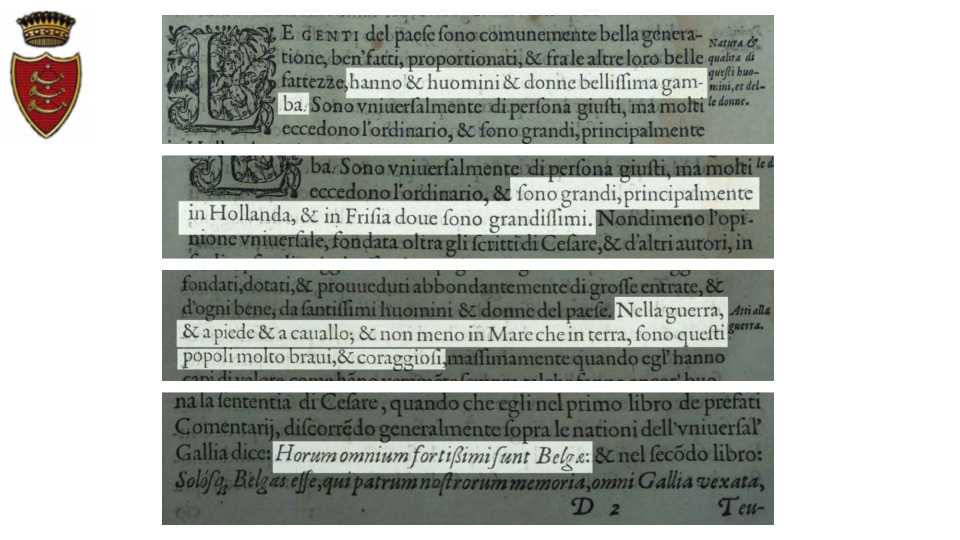 LE GENTI del paeſe ſono comunemente bella genera-
tione, ben'fatti, proportionati, & fra le altre loro belle
fattezze, hanno & huomini & donne belliſſima gam-
ba. Sono vniuerſalmente di perſona giuſti, ma molti
eccedono l'ordinario, & ſono grandi, principalmente
Natura &
qualita di
queſti huo-
mini, et del-
le donne.
ba. Sono vniuerſalmente di perſona giuſti, ma molti
eccedono l'ordinario, & ſono grandi, principalmente
in Hollanda, & in Friſia doue ſono grandiſſimi. Nondimeno l'opi-
nione vniuerſale, fondata oltra gli ſcritti di Ceſare, & d'altri autori, in
fondati, dotati, & prouueduti abbondantemente di groſſe entrate, &
d'ogni bene, da ſantiſſimi huomini & donne del paeſe. Nella guerra,
& a piede & a cauallo; & non meno in Mare che in terra, ſono queſti
popoli molto braui, & coraggioſi, maſſimamente quando egl' hanno
Atti alla
guerra.
na la ſententia di Ceſare, quando che egli nel primo libro de prefati
Comentarij, diſcorrẽdo generalmente ſopra le nationi dell'vniuerſal'
Gallia dice: Horum omnium fortißimi ſunt Belgæ: & nel ſecõdo libro:
Solóſq; Belgas eſſe, qui patrum noſtrorum memoria, omni Gallia vexata,
D 2 Teu-